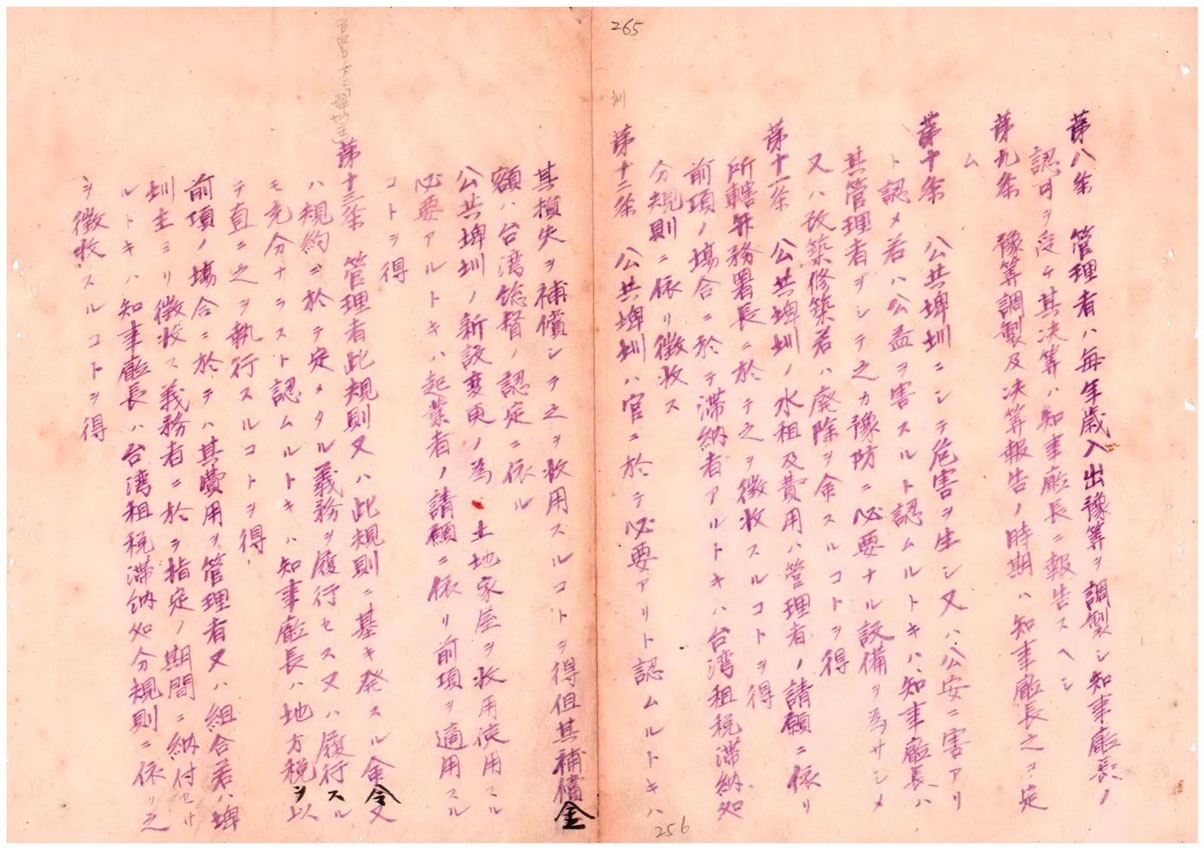 265
第八条 管理者ハ毎年歳入出豫算ヲ調製シ知事廳長ノ
認可ヲ受ケ其决算ハ知事廳長ニ報告スヘシ
第九条 豫算調製及决算報告ノ時期ハ知事廳長之ヲ定
ム
第十条 公共埤圳ニシテ危害ヲ生シ又ハ公安ニ害アリ
ト認メ若ハ公益ヲ害スルト認ムルトキハ知事廳長ハ
其管理者ヲシテ之カ豫防ニ必要ナル設備ヲ為サシメ
又ハ改築修築若ハ廃除ヲ命スルコトヲ得
第十一条 公共埤圳ノ水租及費用ハ管理者ノ請願ニ依リ
所轄弁務署長ニ於テ之ヲ徴收スルコトヲ得
前項ノ場合ニ於テ滞納者アルトキハ台湾租税滞納処
分規則ニ依リ徴收ス
圳
第十二条 公共埤圳ハ官ニ於テ必要アリト認ムルトキハ
256
其損失ヲ補償シテ之ヲ收用スルコトヲ得但其補償金
額ハ台湾総督ノ認定ニ依ル
公共埤圳ノ新設変更ノ為土地家屋ヲ收用使用スル
必要アルトキハ起業者ノ請願ニ依リ前項ヲ適用スル
コトヲ得
第十三条 管理者此規則又ハ此規則ニ基キ発スル命令又
ハ規約ニ於テ定メタル義務ヲ履行セス又ハ履行スル
モ充分ナラスト認ムルトキハ知事廳長ハ地方税ヲ以
テ直ニ之ヲ執行スルコトヲ得
前項ノ場合ニ於テハ其費用ヲ管理者又ハ組合若ハ埤
圳主ヨリ徴收ス義務者ニ於テ指定ノ期間ニ納付セサ
ルトキハ知事廳長ハ台湾租税滞納処分規則ニ依リ之
ヲ徴收スルコトヲ得